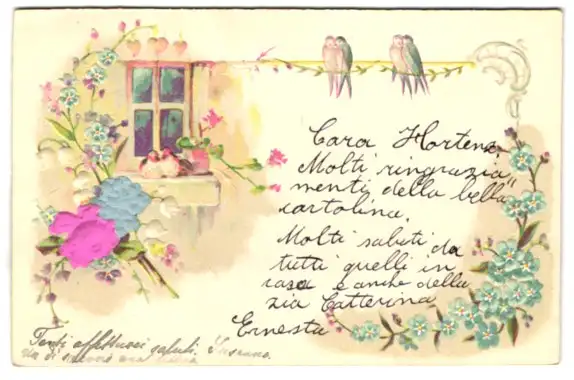 Cara Hortens
Molti ringrazia„
menti della bella
cartolina.
Molti saluti da
tutti quelli in
casa e anche della
zia Catterina
Ernesta
Tanti affettuosi saluti.